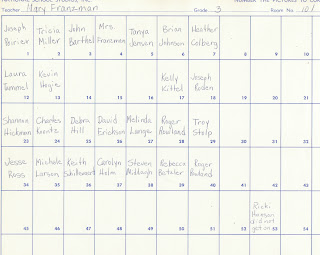 NATIONAL SCHOOL STUDIOS, INC.
Teacher Mary Franzman Grade 3 Room No. 101
Joseph Tricia John Mrs. Tanya Brian Heather
Poirier Miller Barthel Franzman Jensen Johnson Colberg
1 2 3 4 5 6 7 8 9 10
Laura Kevin Kelly Joseph
Tammel Hogie Kittel Roden
12 13 14 15 16 17 18 19 20 21
Shannon Charles Debra David Melinda Roger Troy
Hickman Koontz Hill Erickson Lange Rowland Stulp
23 24 25 26 27 28 29 30 31 32
Jesse Michele Keith Carolyn Steven Rebecca Roger
Ross Larson Holm Roland
34 35 36 37 38 39 40 41 42 43
Ricki
Hanson
did not
get on
45 46 47 48 49 50 51 52 53 54